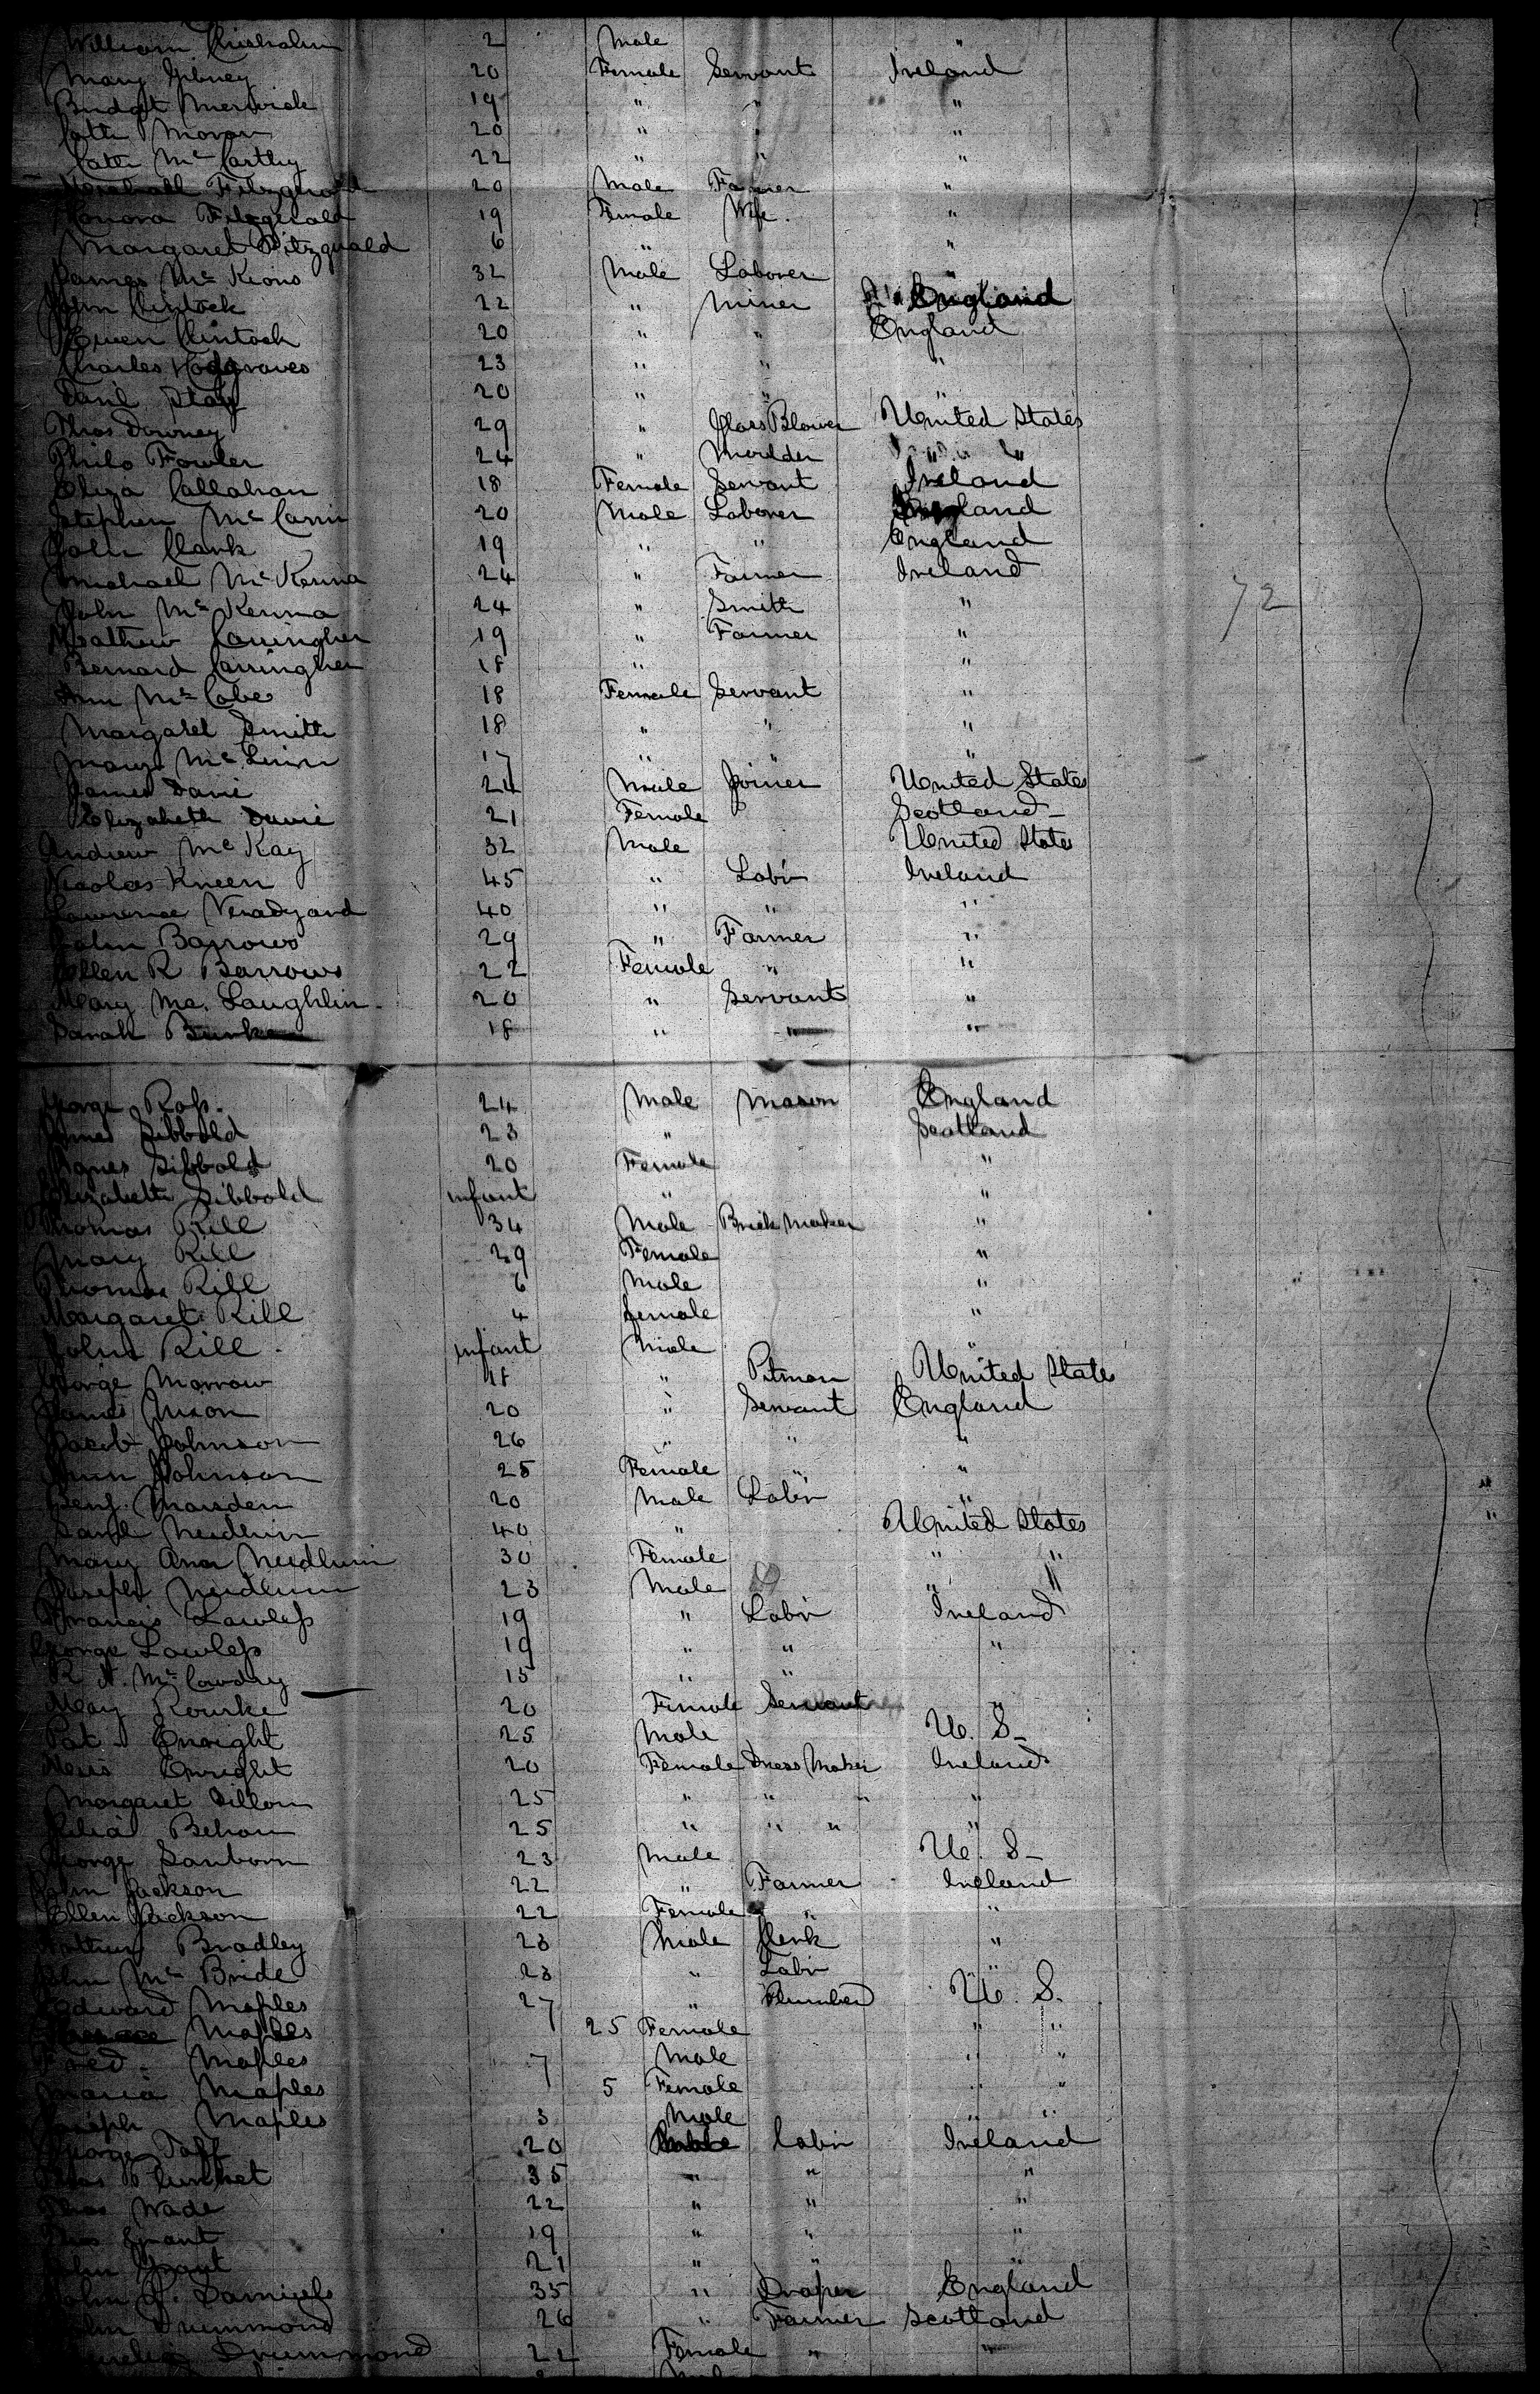 William Chisholm 2 Male "
Mary Gibney 20 Female Servant Ireland
Bridget 19 " " "
Cath Moran 20 " " "
Cath Mc Carthy 22 " " "
Fitzgerald 20 Male Farmer "
Honora Fitzgerald 19 Female Wife "
Margaret Fitzgerald 6 " "
James Mc Keons 32 Male Laborer "
John Clintock 22 " Miner England
Owen Clintock 20 " " England
Charles Hodgraves 23 " " "
Danl Stay 20 " " "
Thos Downey 29 " Glass Blower United States
Philo Fowler 24 " Moulder " "
Eliza Callahan 18 Female Servant Ireland
Stephen Mc Cann 20 Male Laborer England
John Clark 19 " " England
Michael Mc Kenna 24 " Farmer Ireland
John Mc Kenna 24 " Smith "
72
Mathew Carringher 19 " Farmer "
Bernard Carringher 18 " "
Ann Mc Cabe 18 Female Servant "
Margaret Smith 18 " " "
Mary Mc Linn 17 " " "
James Davie 24 Male Joiner United States
Elizabeth Davie 21 Female Scotland
Andrew Mc Kay 32 Male United States
Nicolas Kneen 45 " Labr Ireland
Lawrence 40 " " "
John Barrows 29 " Farmer "
Ellen R Barrows 22 Female " "
Mary Mc. Laughlin 20 " Servant "
Sarah Burke 18 " " "
George Ross 24 Male Mason England
James Sibbold 23 " Scotland
Agnes Sibbold 20 Female "
Elizabeth Sibbold infant " "
Thomas Rill 34 Male Brick Maker "
Mary Rill 29 Female "
Thomas Rill 6 Male "
Margaret Rill 4 female "
John Rill infant Male "
George Morrow 18 " Pitman United States
James Nixon 20 " Servant England
Jacob Johnson 26 " " "
Ann Johnson 25 Female " "
Benj. Marsden 20 Male Labr "
Saml Needlum 40 " United States
Mary Ann Needlum 30 Female " "
Joseph Needlum 23 Male " "
Francis Lawless 19 " Labr Ireland
George Lawless 19 " " "
R A. Mc Cawdry 15 " "
Mary Rourke 20 Female Servant "
Pat Enright 25 Male U. S.
Enright 20 Female Dress Maker Ireland
Margaret Dillon 25 " " " "
Behan 25 " " " "
George Sanborn 23 Male U. S.
John Jackson 22 " Farmer Ireland
Ellen Jackson 22 Female " "
Bradley 23 Male Clerk "
John Mc Bride 23 " Labr "
Edward Maples 27 " Plumber U. S.
Maples 25 Female " "
Fred Maples 7 Male " "
Maria Maples 5 Female " "
Joseph Maples 3 Male " "
George Taff 20 Male Labr Ireland
Thos Plunket 35 " " "
Thos Wade 22 " " "
Thos Grant 19 " " "
John Grant 21 " " "
John Daniels 35 " Draper England
John Drummond 26 " Farmer Scotland
Drummond 22 Female " "